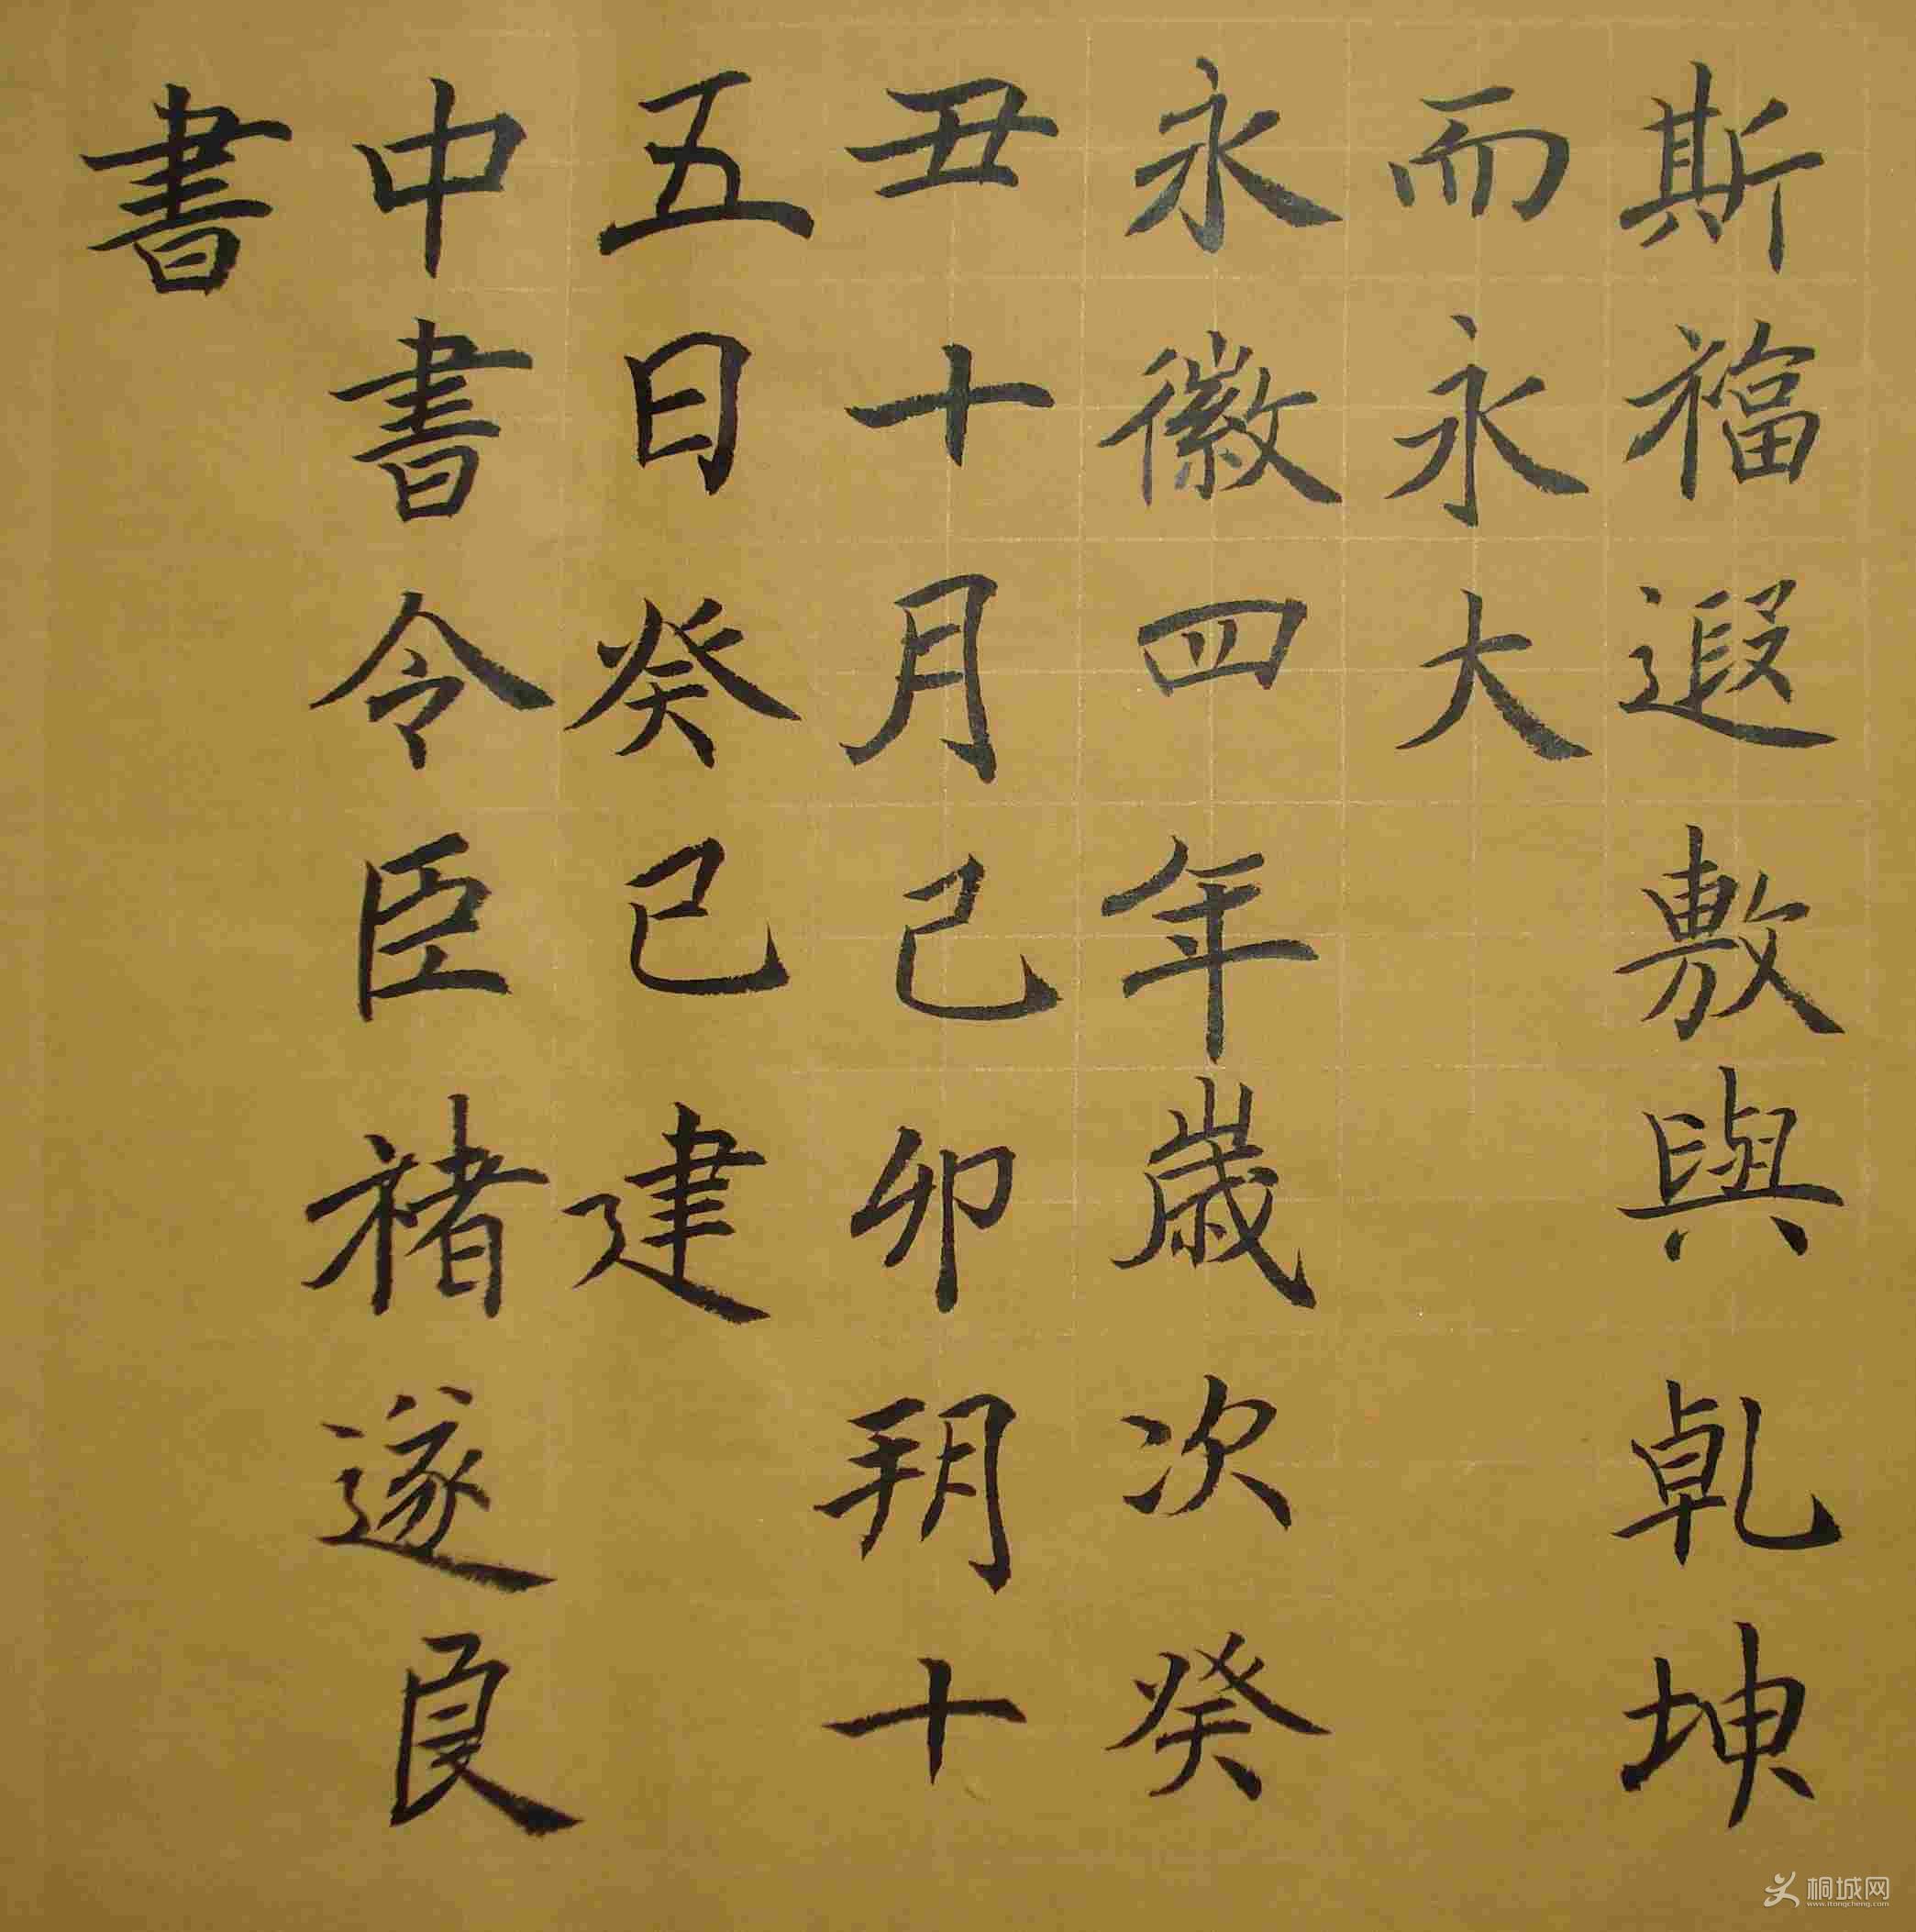 斯福遐敷與乹坤
而永大
永徽四年歲次癸
丑十月己卯朔十
五日癸巳建
中書令臣褚遂良
書
桐城网
www.itongcheng.com